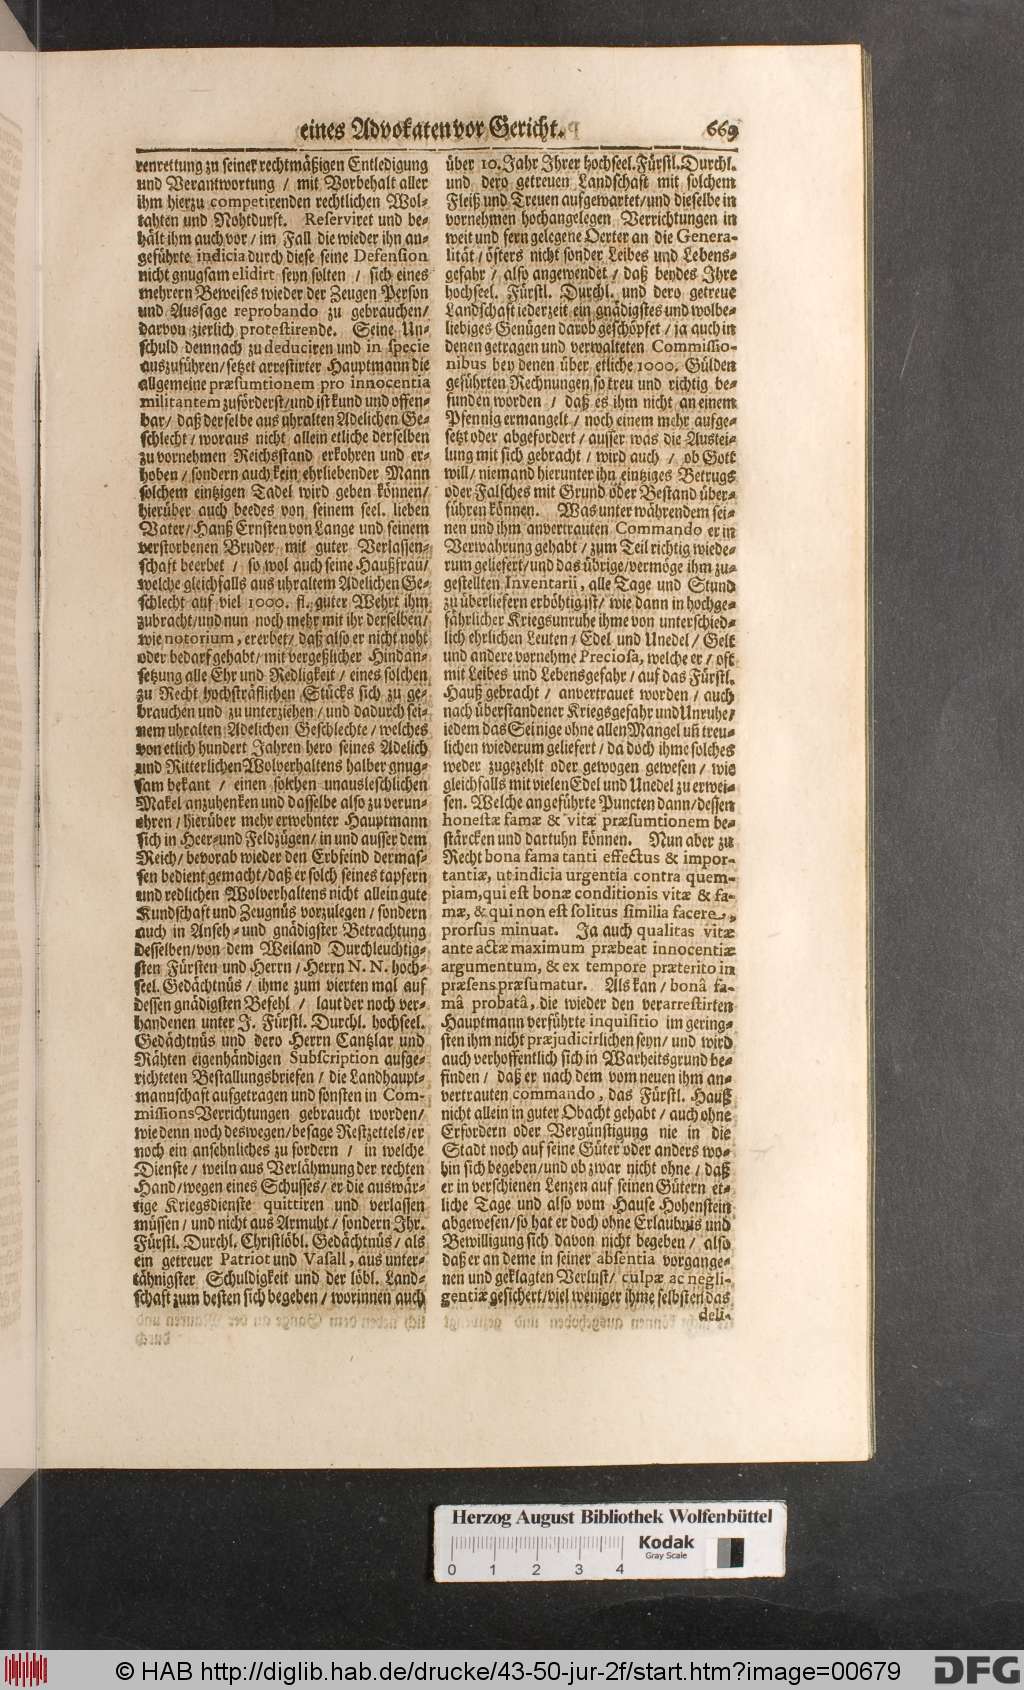 eines Advokaten vor Gericht. 669
renrettung zu seiner rechtmäßigen Entledigung
und Verantwortung / mit Vorbehalt aller
ihm hierzu competirenden rechtlichen Wol-
tahten und Nohtdurft. Reserviret und be-
hält ihm auch vor / im Fall die wieder ihn an-
geführte indicia durch diese seine Defension
nicht gnugsam elidirt seyn solten / sich eines
mehrern Beweises wieder der Zeugen Person
und Aussage reprobando zu gebrauchen /
darvon zierlich protestirende. Seine Un-
schuld demnach zu deduciren und in specie
auszuführen / setzet arrestirter Hauptmann die
allgemeine præsumtionem pro innocentia
militantem zuförderst / und ist kund und offen-
bar / daß derselbe aus uhralten Adelichen Ge-
schlecht / woraus nicht allein etliche derselben
zu vornehmen Reichsstand erkohren und er-
hoben / sondern auch kein ehrliebender Mann
solchem eintzigen Tadel wird geben können /
hierüber auch beedes von seinem seel. lieben
Vater / Hanß Ernsten von Lange und seinem
verstorbenen Bruder mit guter Verlassen-
schaft beerbet / so wol auch seine Haußfrau /
welche gleichfalls aus uhraltem Adelichen Ge-
schlecht auf viel 1000. fl. guter Wehrt ihm
zubracht / und nun noch mehr mit ihr derselben /
wie notorium, ererbet / daß also er nicht noht
oder bedarf gehabt / mit vergeßlicher Hindan-
setzung alle Ehr und Redligkeit / eines solchen
zu Recht hochsträflichen Stücks sich zu ge-
brauchen und zu unterziehen / und dadurch sei-
nem uhralten Adelichen Geschlechte / welches
von etlich hundert Jahren hero seines Adelich
und Ritterlichen Wolverhaltens halber gnug-
sam bekant / einen solchen unausleschlichen
Makel anzuhenken und dasselbe also zu verun-
ehren / hierüber mehr erwehnter Hauptmann
sich in Heer- und Feldzügen / in und ausser dem
Reich / bevorab wieder den Erbfeind dermas-
sen bedient gemacht / daß er solch seines tapfern
und redlichen Wolverhaltens nicht allein gute
Kundschaft und Zeugnüs vorzulegen / sondern
auch in Anseh- und gnädigster Betrachtung
desselben / von dem Weiland Durchleuchtig-
sten Fürsten und Herrn / Herrn N. N. hoch-
seel. Gedächtnüs / ihme zum vierten mal auf
dessen gnädigsten Befehl / laut der noch ver-
handenen unter J. Fürstl. Durchl. hochseel.
Gedächtnüs und dero Herrn Cantzlar und
Rähten eigenhändigen Subscription aufge-
richteten Bestallungsbriefen / die Landhaupt-
mannschaft aufgetragen und sonsten in Com-
missions Verrichtungen gebraucht worden /
wie denn noch deswegen / besage Restzettels / er
noch ein ansehnliches zu fordern / in welche
Dienste / weiln aus Verlähmung der rechten
Hand / wegen eines Schusses / er die auswär-
tige Kriegsdienste quittiren und verlassen
müssen / und nicht aus Armuht / sondern Ihr.
Fürstl. Durchl. Christlöbl. Gedächtnüs / als
ein getreuer Patriot und Vasall, aus unter-
tähnigster Schuldigkeit und der löbl. Land-
schaft zum besten sich begeben / worinnen auch
über 10. Jahr Ihrer hochseel. Fürstl. Durchl.
und dero getreuen Landschaft mit solchem
Fleiß und Treuen aufgewartet / und dieselbe in
vornehmen hochangelegen Verrichtungen in
weit und fern gelegene Oerter an die Genera-
lität / öfters nicht sonder Leibes und Lebens-
gefahr / also angewendet / daß beydes Ihre
hochseel. Fürstl. Durchl. und dero getreue
Landschaft iederzeit ein gnädigstes und wolbe-
liebiges Genügen darob geschöpfet / ja auch in
denen getragen und verwalteten Commissio-
nibus bey denen über etliche 1000. Gülden
geführten Rechnungen so treu und richtig be-
funden worden / daß es ihm nicht an einem
Pfennig ermangelt / noch einem mehr aufge-
setzt oder abgefordert / ausser was die Austei-
lung mit sich gebracht / wird auch / ob Gott
will / niemand hierunter ihn eintziges Betrugs
oder Falsches mit Grund oder Bestand über-
führen können. Was unter währendem sei-
nen und ihm anvertrauten Commando er in
Verwahrung gehabt / zum Teil richtig wiede-
rum geliefert / und das übrige / vermöge ihm zu-
gestellten Inventarii, alle Tage und Stund
zu überliefern erböhtig ist / wie dann in hochge-
fährlicher Kriegsunruhe ihme von unterschied-
lich ehrlichen Leuten / Edel und Unedel / Gelt
und andere vornehme Preciosa, welche er / oft
mit Leibes und Lebensgefahr / auf das Fürstl.
Hauß gebracht / anvertrauet worden / auch
nach überstandener Kriegsgefahr und Unruhe /
iedem das Seinige ohne allen Mangel uñ treu-
lichen wiederum geliefert / da doch ihme solches
weder zugezehlt oder gewogen gewesen / wie
gleichfalls mit vielen Edel und Unedel zu erwei-
sen. Welche angeführte Puncten dann / dessen
honestæ famæ & vitæ præsumtionem be-
stärcken und dartuhn können. Nun aber zu
Recht bona fama tanti effectus & impor-
tantiæ, ut indicia urgentia contra quem-
piam, qui est bonæ conditionis vitæ & fa-
mæ, & qui non est solitus similia facere,
prorsus minuat. Ja auch qualitas vitæ
ante actæ maximum præbeat innocentiæ
argumentum, & ex tempore præterito in
præsens præsumatur. Als kan / bonâ fa-
mâ probatâ, die wieder den verarrestirten
Hauptmann verführte inquisitio im gering-
sten ihm nicht præjudicirlichen seyn / und wird
auch verhoffentlich sich in Warheitsgrund be-
finden / daß er nach dem vom neuen ihm an-
vertrauten commando, das Fürstl. Hauß
nicht allein in guter Obacht gehabt / auch ohne
Erfordern oder Vergünstigung nie in die
Stadt noch auf seine Güter oder anders wo-
hin sich begeben / und ob zwar nicht ohne / daß
er in verschienen Lenzen auf seinen Gütern et-
liche Tage und also vom Hause Hohenstein
abgewesen / so hat er doch ohne Erlaubnis und
Bewilligung sich davon nicht begeben / also
daß er an deme in seiner absentia vorgange-
nen und geklagten Verlust / culpæ ac negli-
gentiæ gesichert / viel weniger ihme selbsten das
deli-
Herzog August Bibliothek Wolfenbüttel
Kodak
Gray Scale
0 1 2 3 4
© HAB http://diglib.hab.de/drucke/43-50-jur-2f/start.htm?image=00679
DFG